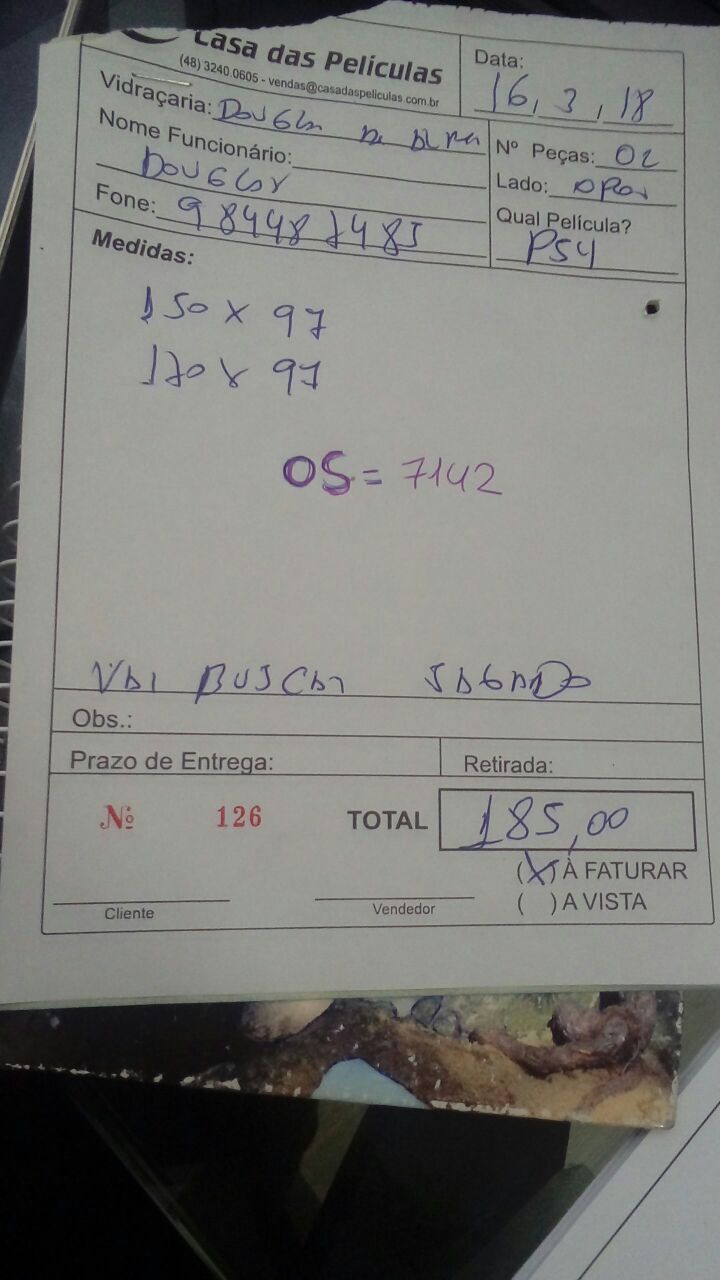 Casa das Películas
(48) 3240.0605 - vendas@casadaspeliculas.com.br
Data:
16, 3, 18
Vidraçaria: DOUGLA
Nome Funcionário:
DOUGLAS
Fone: 984487485
Nº Peças: 02
Lado:
Qual Película?
PS4
Medidas:
150 x 97
170 x 97
OS = 7142
VAI BUSCAR SABADO
Obs.:
Prazo de Entrega:
Retirada:
Nº 126
TOTAL 185,00
(X) À FATURAR
( ) A VISTA
Cliente
Vendedor